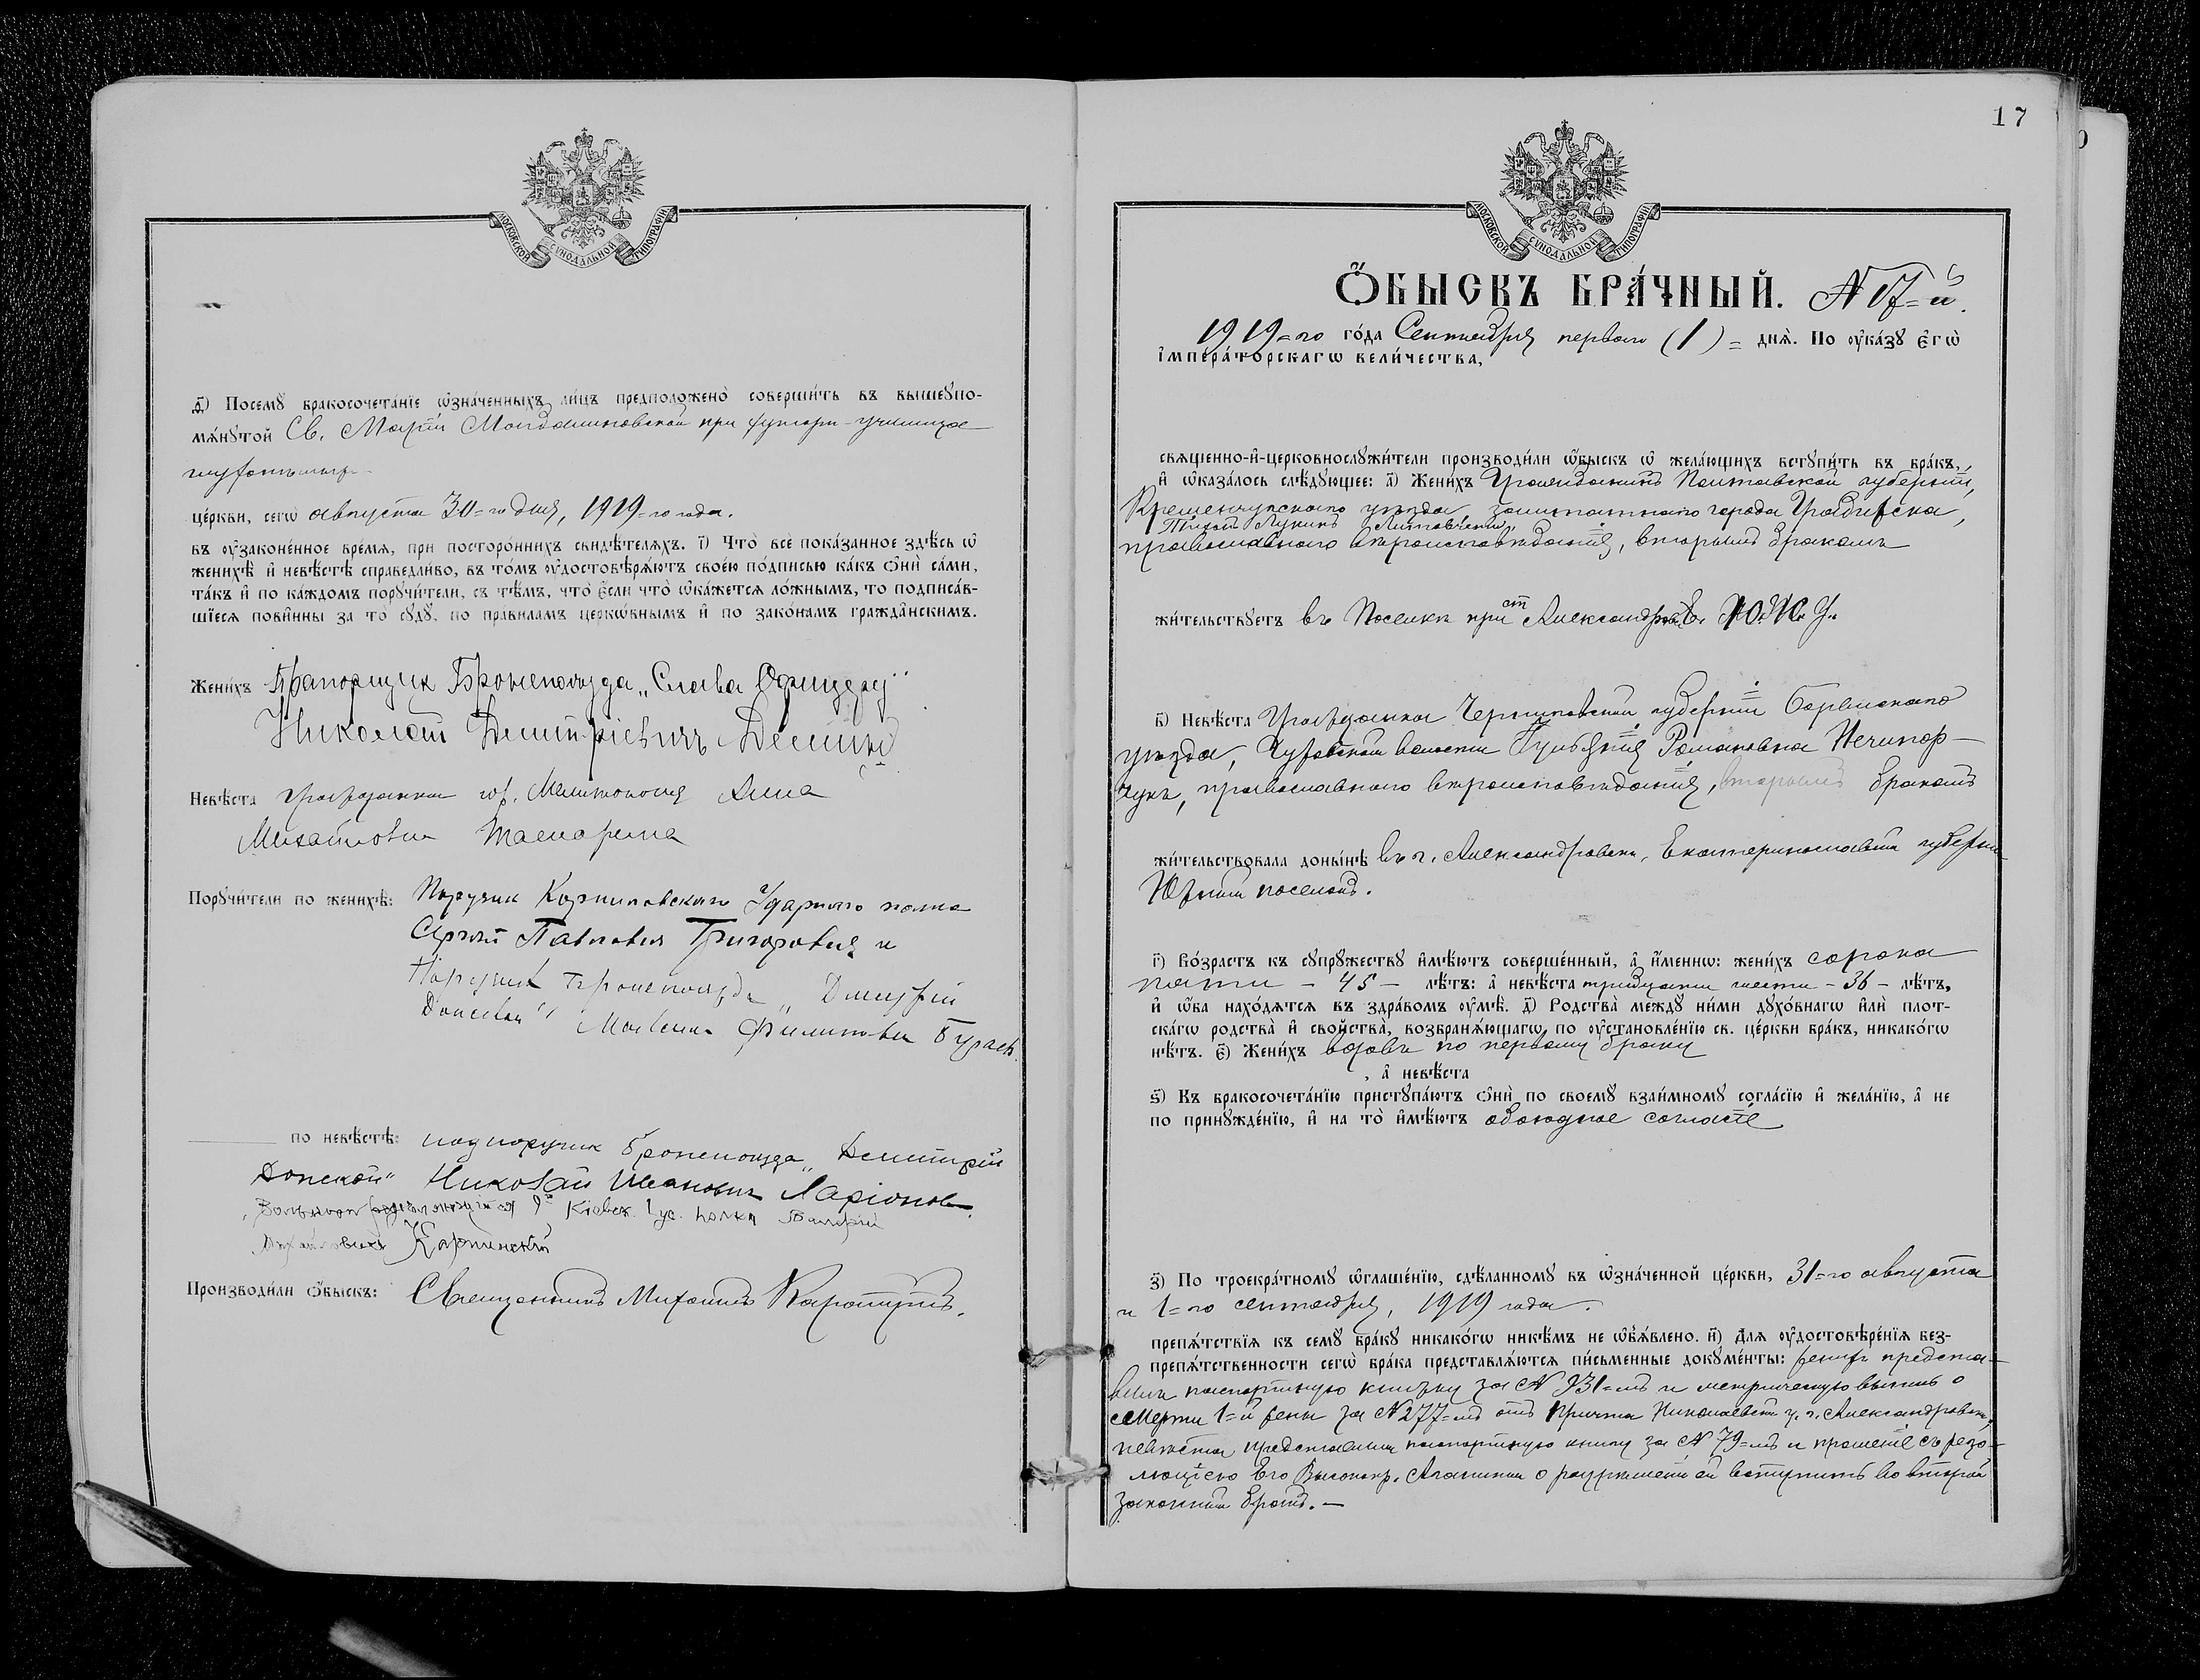 МОСКОВСКОЙ СѴНОДАЛЬНОЙ ТИПОГРАФІИ
д҃) Посемꙋ бракосочета́нїе ѡ҆зна́ченныхъ ли́цъ предположено̀ соверши́ть въ вышеꙋпо-
мѧ́нꙋтой Св. Маріи Магдалиновской при
це́ркви, сегѡ̀ августа 30=го дня, 1919=го года.
въ ᲂу҆законе́нное вре́мѧ, при посторо́ннихъ свидѣ́телѧхъ. і҃) Что̀ всѐ пока́занное здѣ́сь ѡ҆
женихѣ̀ и҆ невѣ́стѣ справедли́во, въ то́мъ ᲂу҆достовѣрѧ́ютъ свое́ю по́дписью ка́къ ѻ҆нѝ са́ми,
та́къ и҆ по ка́ждомъ порꙋчи́тели, съ тѣ́мъ, что̀ є҆́сли что̀ ѡ҆ка́жетсѧ ло́жнымъ, то подписа́в-
шїесѧ пови́нны за то̀ сꙋдꙋ̀, по пра́виламъ церко́внымъ и҆ по зако́намъ гражда́нскимъ.
Жени́хъ Прапорщик Бронепоезда „Слава Офицеру"
Николай Дмитріевичъ Демин
Невѣ́ста Гражданка гор. Мелитополя Анна
Михайловна
Порꙋчи́тели по женихѣ̀: Поручик Корниловского Ударного полка
Сергѣй Павлович Григорович и
Поручик Бронепоезда „Дмитрій
Донской" Филиппович
по невѣ́стѣ: подпоручик бронепоезда „Дмитрій
Донской" Николай Иванович Ларіонов
9го Кіевск. Гус. полка Валерій
Михайлович Карпинскій
Производи́ли ѻ҆́быскъ: Священникъ Михаилъ
17
МОСКОВСКОЙ СѴНОДАЛЬНОЙ ТИПОГРАФІИ
Ѻ҆́БЫСКЪ БРА́ЧНЫЙ. N 17=й.
1919=го го́да Сентября перваго (1) = днѧ̀. По ᲂу҆ка́зꙋ є҆гѡ̀
і҆мпера́торскагѡ вели́чества,
свѧще́нно-и҆-церковнослꙋжи́тели производи́ли ѡ҆́быскъ ѡ҆ жела́ющихъ встꙋпи́ть въ бра́къ,
и҆ ѡ҆каза́лось слѣ́дꙋющее: а҃) Жени́хъ Гражданинъ Полтавской губерніи,
Кременчугскаго уѣзда заштатнаго города Градижска,
Тихон Лукинъ Литовченко,
православнаго вѣроисповѣданія, вторымъ бракомъ
жи́тельствꙋетъ въ Поселкѣ при ст Александровскъ Ю. Ж. д.
в҃) Невѣ́ста Гражданка Черниговской губерніи Борзенскаго
уѣзда, волости Романовна Нечипор-
чукъ, православнаго вѣроисповѣданія, вторымъ бракомъ
жи́тельствовала доны́нѣ въ г. Александровскѣ, Екатеринославской губерніи
Южный поселокъ.
г҃) Во́зрастъ къ сꙋпрꙋ́жествꙋ и҆мѣ́ютъ соверше́нный, а҆ и҆́менно: жени́хъ сорока
пяти - 45 - лѣ́тъ: а҆ невѣ́ста тридцати шести - 36 - лѣ́тъ,
и҆ ѡ҆́ба нахо́дѧтсѧ въ здра́вомъ ᲂу҆мѣ̀. д҃) Родства̀ междꙋ̀ ни́ми дꙋхо́внагѡ и҆лѝ плот-
ска́гѡ родства̀ и҆ сво́йства, возбранѧ́ющагѡ по ᲂу҆становле́нїю св. це́ркви бра́къ, никако́гѡ
нѣ́тъ. є҃) Жени́хъ вдовъ по первому браку
, а҆ невѣ́ста
ѕ҃) Къ бракосочета́нїю пристꙋпа́ютъ ѻ҆нѝ по своемꙋ̀ взаи́мномꙋ согла́сїю и҆ жела́нїю, а҆ не
по принꙋжде́нїю, и҆ на то̀ и҆мѣ́ютъ обоюдное согласіе
з҃) По троекра́тномꙋ ѡ҆глаше́нїю, сдѣ́ланномꙋ въ ѡ҆зна́ченной це́ркви, 31=го августа
и 1=го сентября, 1919 года.
препѧ́тствїѧ къ семꙋ̀ бра́кꙋ никако́гѡ никѣ́мъ не ѡ҆б̾ѧ́влено. и҃) Длѧ ᲂу҆достовѣре́нїѧ без-
препѧ́тственности сегѡ̀ бра́ка представлѧ́ютсѧ пи́сьменные докꙋме́нты: женихъ предста-
вилъ паспортную книжку за N 931=мъ и метрическую выпись о
смерти 1=й жены за N 277=мъ отъ Причта Николаевской ц. г. Александровска,
невѣста представила паспортную книжку за N 79=мъ и прошеніе съ резо-
люціею Его Высокопр. Агапита о разрѣшеніи ей вступить во второй
законный бракъ. —